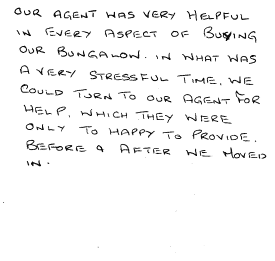 OUR AGENT WAS VERY HELPFUL
IN EVERY ASPECT OF BUYING
OUR BUNGALOW. IN WHAT WAS
A VERY STRESSFUL TIME, WE
COULD TURN TO OUR AGENT FOR
HELP, WHICH THEY WERE
ONLY TO HAPPY TO PROVIDE,
BEFORE & AFTER WE MOVED
IN.